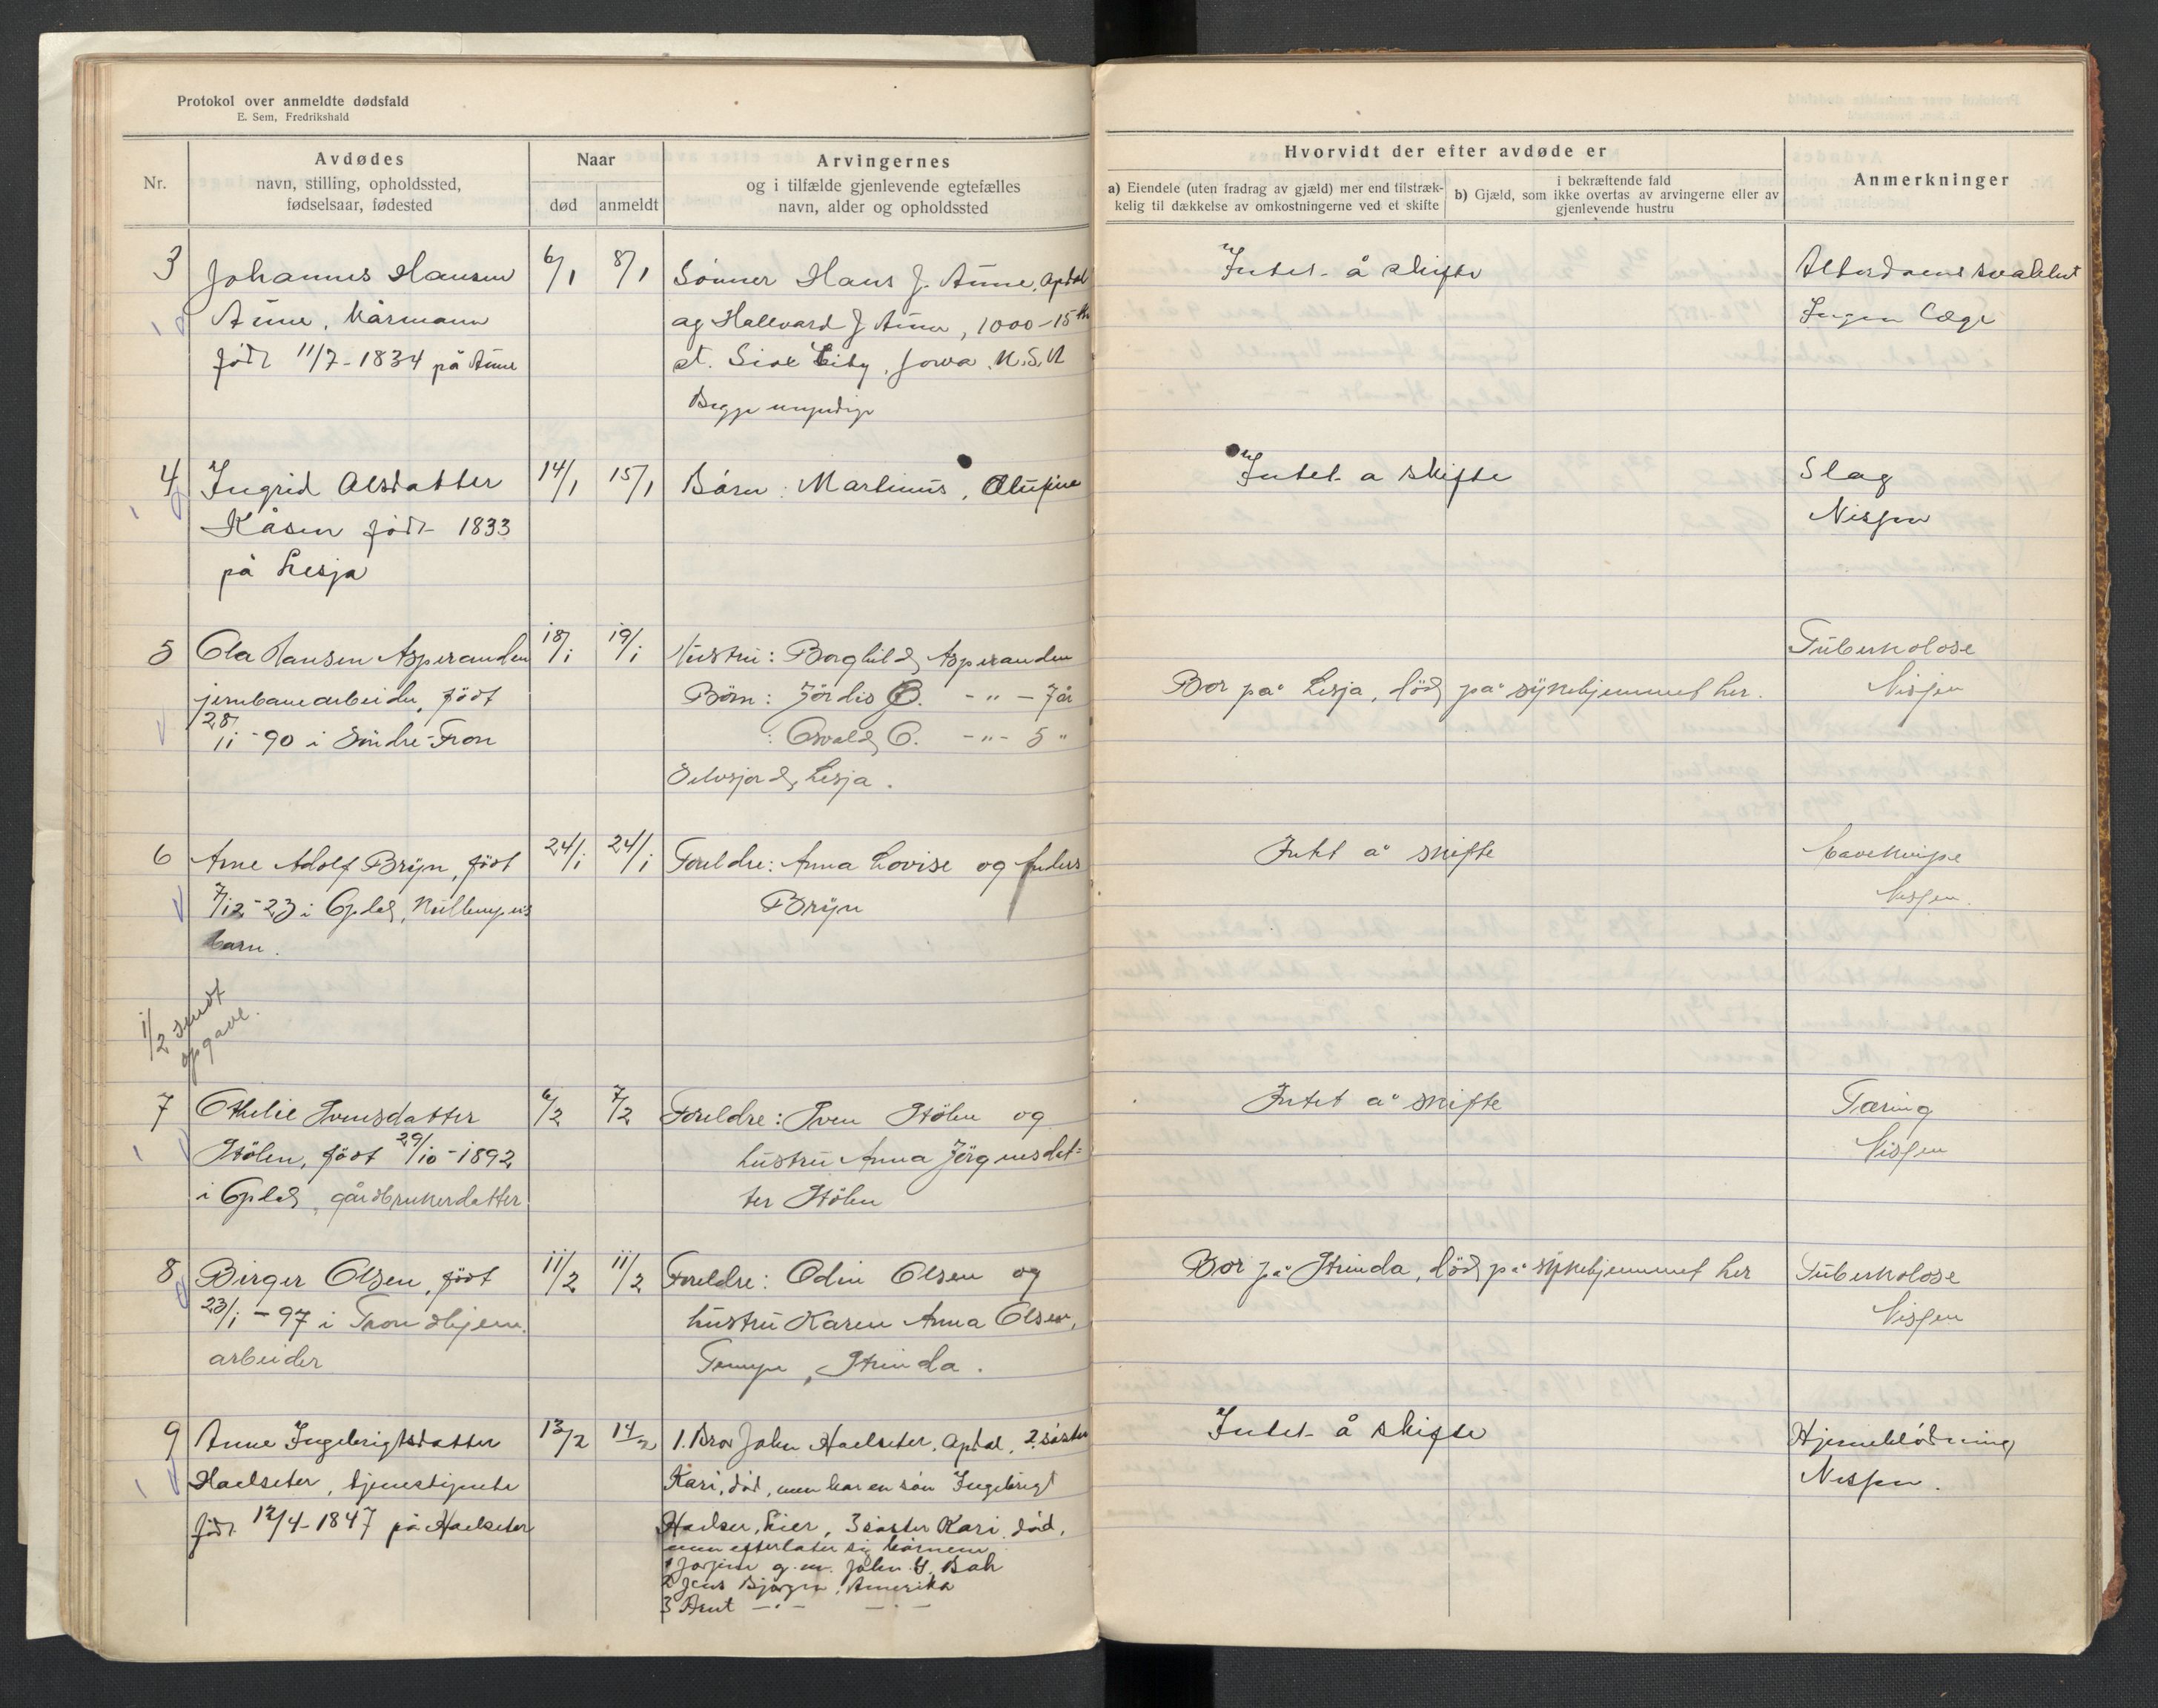 Protokol over anmeldte dødsfald
E. Sem, Fredrikshald
Nr.
Avdødes
navn, stilling, opholdssted,
fødselsaar, fødested
Naar
død
anmeldt
Arvingernes
og i tilfælde gjenlevende egtefælles
navn, alder og opholdssted
Hvorvidt der efter avdøde er
a) Eiendele (uten fradrag av gjæld) mer end tilstræk-
kelig til dækkelse av omkostningerne ved et skifte
i bekræftende fald
b) Gjæld, som ikke overtas av arvingerne eller av
gjenlevende hustru
Anmerkninger
3 Johannes Hansen 6/1 8/1 Sönner Hans J. Aune, Opdal Intet å skifte Alderdomssvakhet
Aune, kårmann og Hallvard J Aune, 1000-15th Ingen læge
född 11/7-1834 på Aune st. Siox City, Jowa U.S.A
Begge myndige
4 Ingrid Olsdatter 14/1 15/1 Børn: Martinus, Olufine Intet å skifte Slag
Kåsen född 1833 Nissen
på Lesja
5 Ola Hansen Asperanden 18/1 19/1 Hustru: Borghild Asperanden Tuberkolose
jernbanearbeider, född Börn: Jördis O. -"- 7 år Bor på Lesja, död på sykehjemmet her. Nissen
28/11-90 i Söndre-Fron : Osvald O. -"- 5 "
Lesja.
6 Arne Adolf Bryn, född 24/1 24/1 Foreldre: Anna Lovise og Anders Intet å skifte Nissen.
7/12-23 i Opdal, Bryn
barn.
1/2 sendt
opgave.
7 Othelie Ivensdatter 6/2 7/2 Foreldre: Iven Stölen og Intet å skifte Tæring
Stölen, född 29/10-1892 hustru Anna Jörgensdat= Nissen
i Opdal, gårdbrukerdatter ter Stölen
8 Birger Olsen, född 11/2 11/2 Foreldre: Odin Olsen og Bor på Strinda, död på sykehjemmet her Tuberkolose
23/1-97 i Trondhjem. hustru Karen Anna Olsen, Nissen
arbeider Tempe, Strinda.
9 Anne Ingebrigtsdatter 13/2 14/2 1. Bror John Haelseter, Opdal, 2. söster Intet å skifte Hjerneblödning
Haelseter, tjenestejente Kari, död, men har en sön Ingebrigt Nissen.
född 12/4-1847 på Haelseter Lier, 3 söster Kari död,
men efterlater sig börnene
1 g.m. John
2 Jens Bjørgen, Amerika
3 Arnt -"- -"-